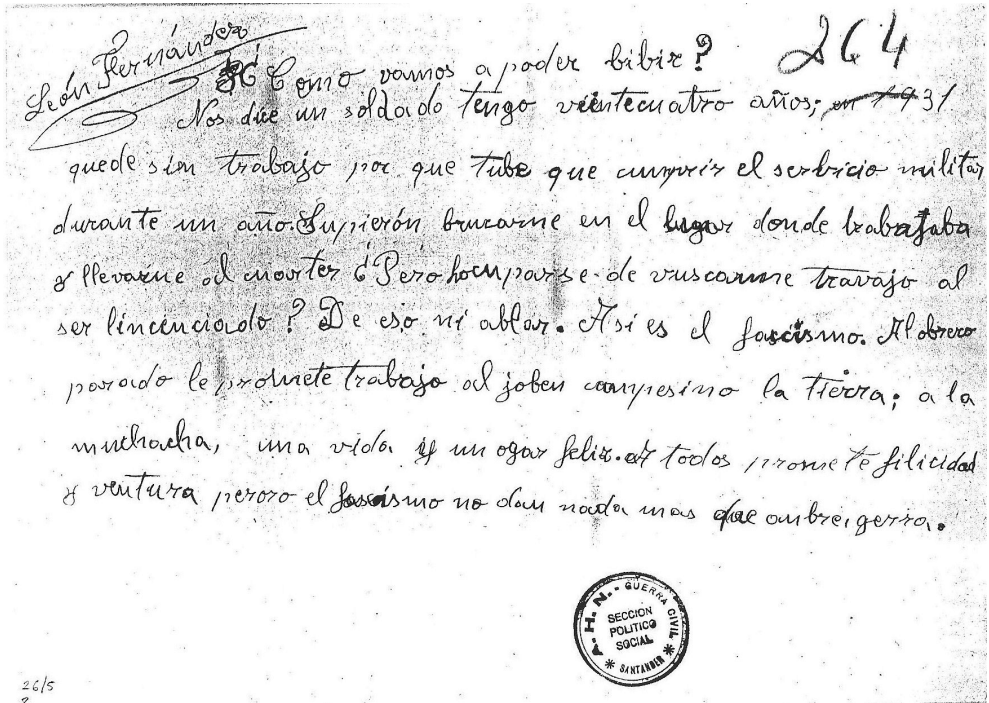 León Fernández
264
¿Como vamos a poder bibir?
Nos dice un soldado tengo veintecuatro años; en 1931
quede sin trabajo por que tube que cumprir el serbicio militar
durante un año. Supierón bruzarme en el lugar donde trabajaba
y llevarme al cuarter ¿Pero hocuparse de vuscarme travajo al
ser lincenciado? De eso ni ablar. Asi es el fascismo. Al obrero
parado le promete trabajo al joben campesino la tierra; a la
muchacha, una vida y un ogar feliz. a todos promete filicidad
y ventura peroro el fascismo no dan nada mas que ambre, gerra.
A. H. N. - GUERRA CIVIL
SECCION
POLITICO
SOCIAL
* SANTANDER *
26/5